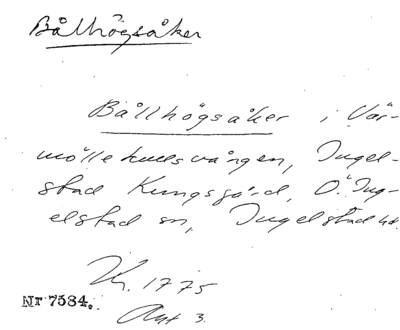 Bålhögsåker
Bållhögsåker i Vär-
möllekullsvången, Ingel-
stad Kungsgård, Ö. Ing-
elstad sn, Ingelstad hd.
K. 1775
Nr 7584.
Akt 3.